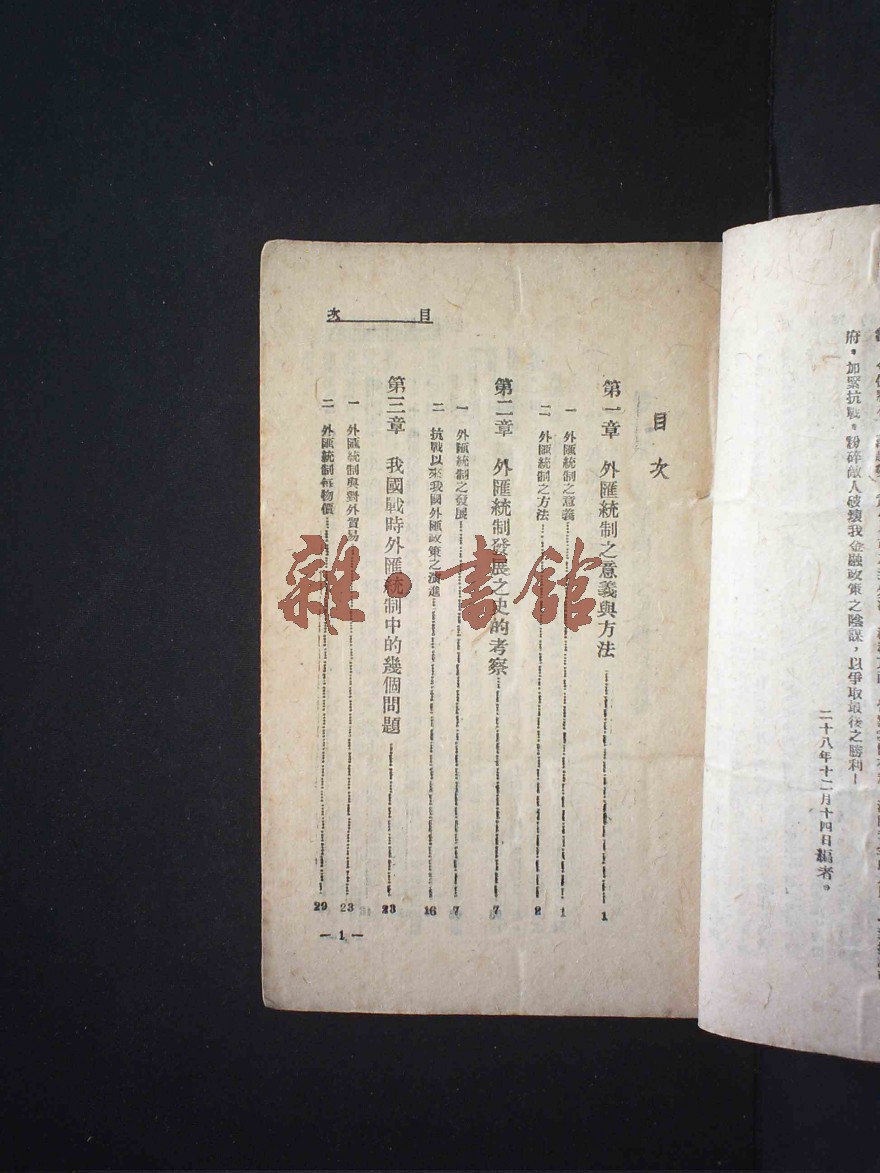 府，加緊抗戰，粉碎敵人破壞我金融政策之陰謀，以爭取最後之勝利！
二十八年十二月十四日編者。
目次
目次
第一章 外匯統制之意義與方法 1
一 外匯統制之意義 1
二 外匯統制之方法 2
第二章 外匯統制發展之史的考察 7
一 外匯統制之發展 7
二 抗戰以來我國外匯政策之演進 16
第三章 我國戰時外匯統制中的幾個問題 23
一 外匯統制與對外貿易 23
二 外匯統制與物價 29
— 1 —
雜·書館